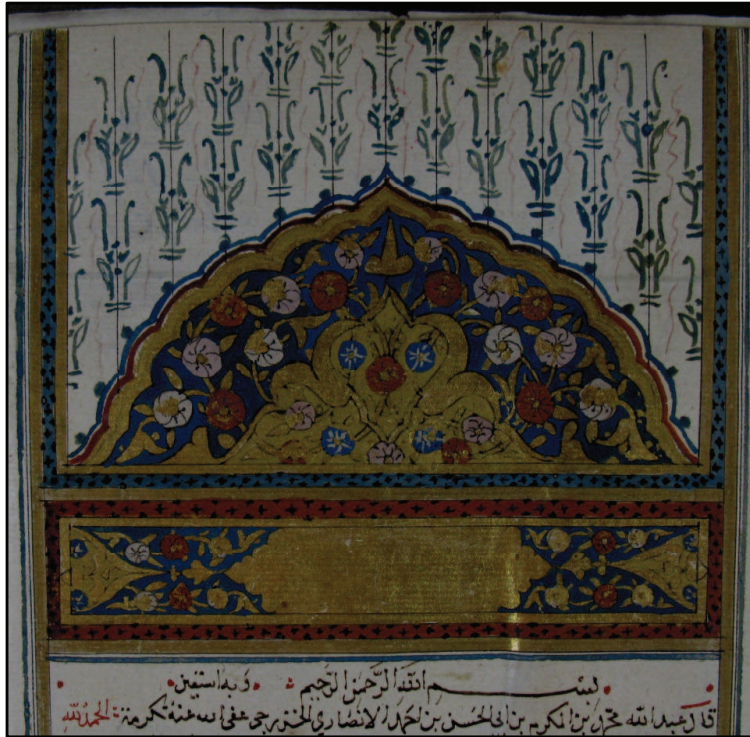 بسم الله الرحمن الرحيم وبه استعين
قال عبد الله محمد بن المكرم بن ابى الحسن بن احمد الانصاري الخزرجى عفى الله عنه بكرمه الحمد لله